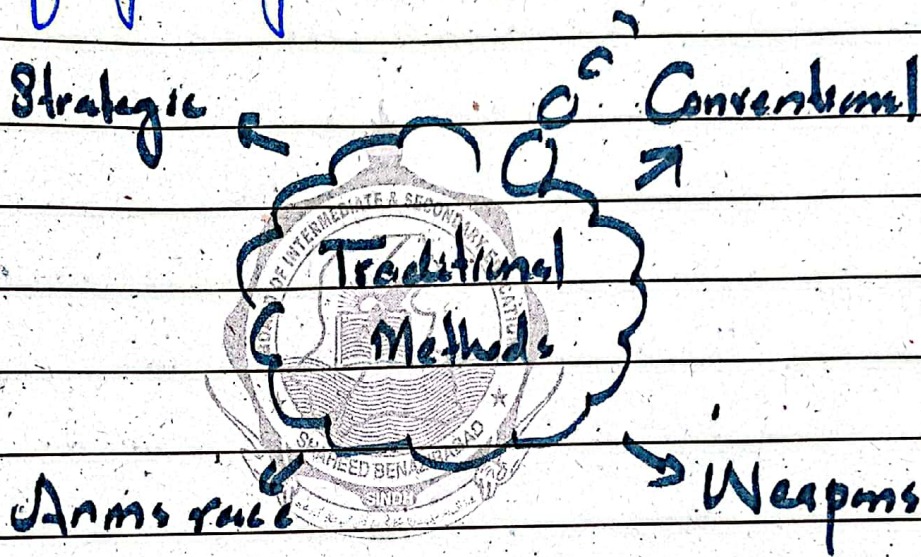 Strategic
Conventional
Traditional
Methods
Arms race
Weapons
OF INTERMEDIATE & SECONDARY
SHAHEED BENAZIRABAD
SINDH